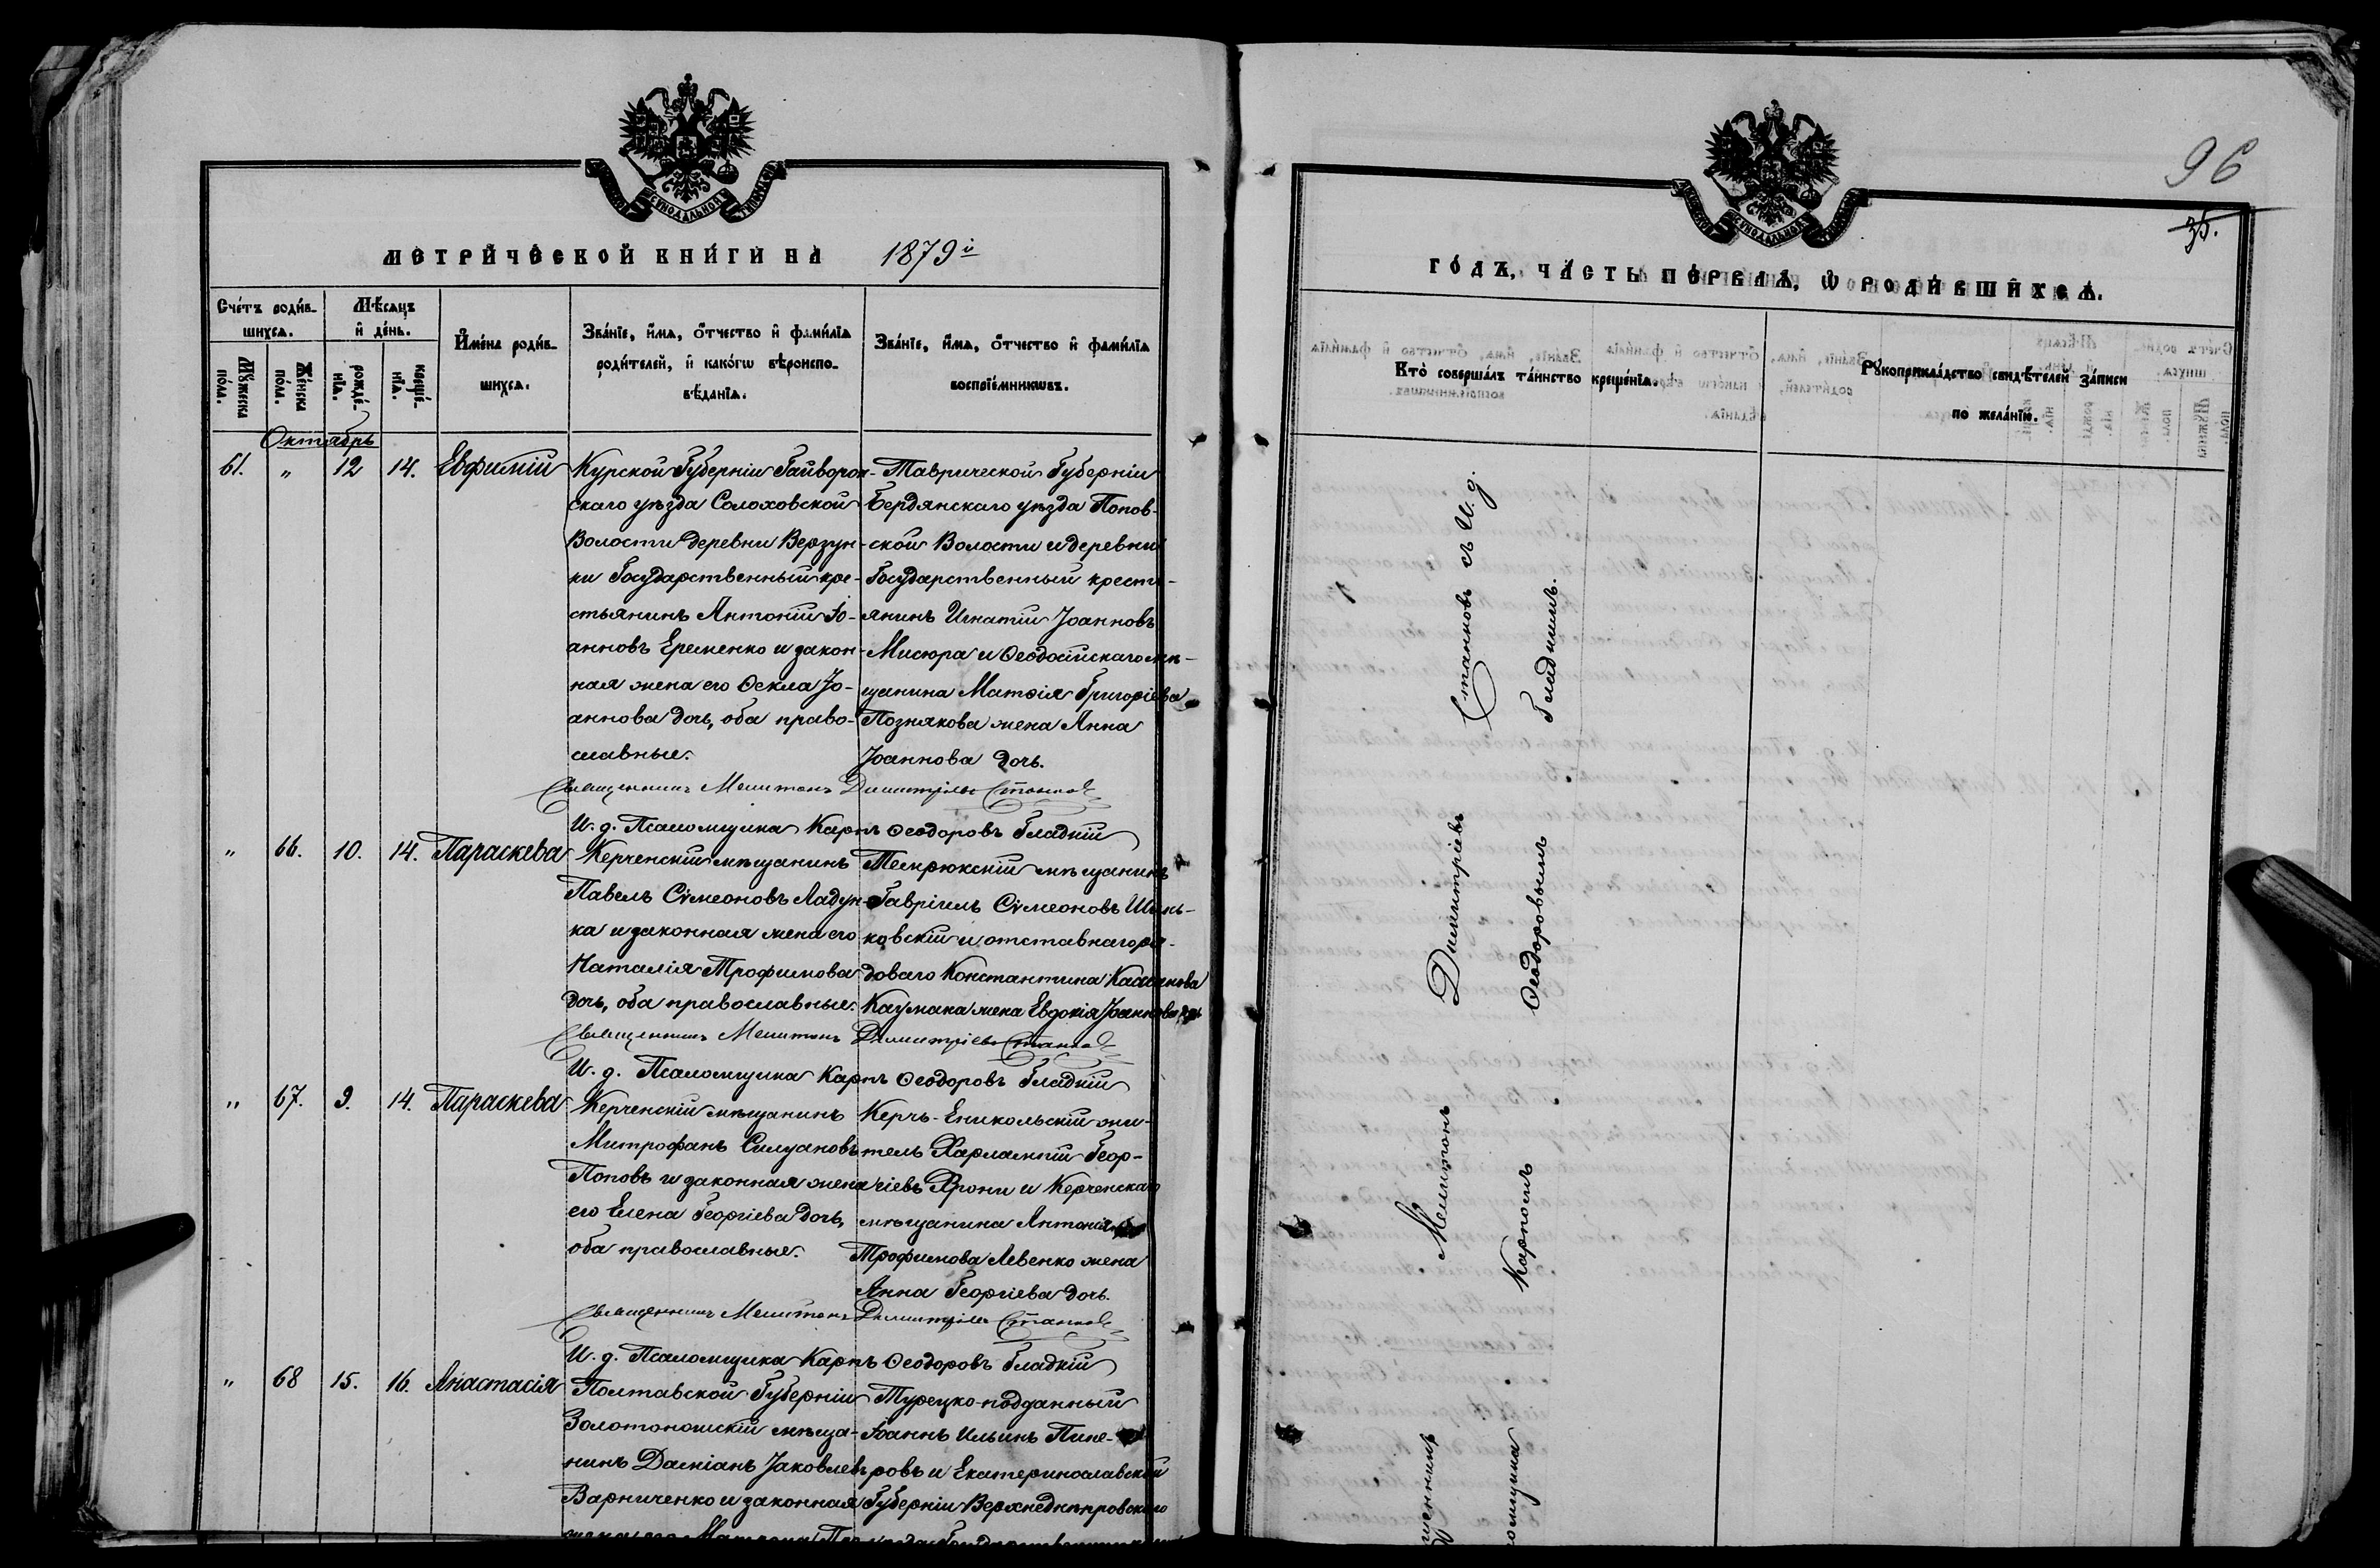 СѴНОДАЛЬНОЙ
МЕТРИ́ЧЕСКОЙ КНИ́ГИ НА 1879й
Сче́тъ роди́в-
шихсѧ.
Мѣ́сѧцъ
и҆ де́нь.
И҆мена̀ роди́в-
шихсѧ.
Зва́нїе, и҆́мѧ, ѻ҆́тчество и҆ фами́лїѧ
роди́телей, и҆ како́гѡ вѣроиспо-
вѣ́данїѧ.
Зва́нїе, и҆́мѧ, ѻ҆́тчество и҆ фами́лїѧ
воспрїе́мникѡвъ.
Мꙋ́жеска
по́ла.
Же́нска
по́ла.
рожде́-
нїѧ.
креще́-
нїѧ.
Октябрь
61. „ 12 14. Евфимій
Курской Губерніи Гайворон-
скаго уѣзда Солоховской
Волости деревни Верзун-
ки Государственный кре-
стьянинъ Антоній Іо-
анновъ Еременко и закон-
ная жена его Ѳекла Іо-
аннова дочь, оба право-
славные.
Таврической Губерніи
Бердянскаго уѣзда Попов-
ской Волости и деревни
Государственный крестъ-
янинъ Игнатій Іоанновъ
Мисюра и Ѳеодосійскаго мѣ-
щанина Матѳія Григоріева
Познякова жена Анна
Іоаннова дочь.
Священникъ Мелитонъ Димитріевъ Станковъ
И. д. Псаломщика Карпъ Ѳеодоровъ Гладкій
„ 66. 10. 14. Параскева
Керченскій мѣщанинъ
Павелъ Сѵмеоновъ Ладун-
ка и законная жена его
Наталія Трофимова
дочь, оба православные.
Темрюкскій мѣщанинъ
Гавріилъ Сѵмеоновъ
ковскій и отставнаго ря-
доваго Константина Касьянова
Каумака жена Евдокія Іоаннова дочь
Священникъ Мелитонъ Димитріевъ Станковъ
И. д. Псаломщика Карпъ Ѳеодоровъ Гладкій
„ 67. 9. 14. Параскева
Керченскій мѣщанинъ
Митрофанъ Силуановъ
Поповъ и законная жена
его Елена Георгіева дочь,
оба православные.
Керчь-Еникольскій жи-
тель Харлампій Геор-
гіевъ Хрони и Керченскаго
мѣщанина Антонія
Трофимова Левенко жена
Анна Георгіева дочь.
Священникъ Мелитонъ Димитріевъ Станковъ
И. д. Псаломщика Карпъ Ѳеодоровъ Гладкій
„ 68 15. 16. Анастасія
Полтавской Губерніи
Золотоношскій мѣща-
нинъ Даміанъ Іаковлевъ
Варниченко и законная
жена его Матрона
Турецко-подданный
Іоаннъ Ильинъ Пипе-
ровъ и Екатеринославской
Губерніи Верхнеднѣпровскаго
96
35.
СѴНОДАЛЬНОЙ
ГО́ДЪ, ЧА́СТЬ ПЕ́РВАѦ, Ѡ҆ РОДИ́ВШИХСѦ.
Кто̀ соверша́лъ та́инство креще́нїѧ.
Рꙋкоприкла́дство свидѣ́телей за́писи
по жела́нїю.
щенникъ Мелитонъ Димитріевъ Станковъ съ И. д.
омщика Карпомъ Ѳеодоровымъ Гладкимъ.